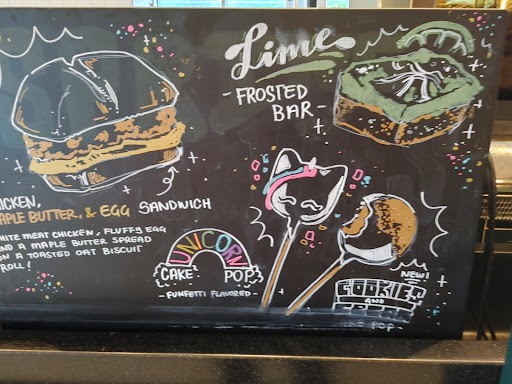 Lime
- FROSTED
BAR -
HICKEN,
MAPLE BUTTER, & EGG SANDWICH
WHITE MEAT CHICKEN, FLUFFY EGG
AND A MAPLE BUTTER SPREAD
ON A TOASTED OAT BISCUIT
ROLL!
UNICORN
CAKE POP
- FUNFETTI FLAVORED -
NEW!
COOKIES
AND
POP -